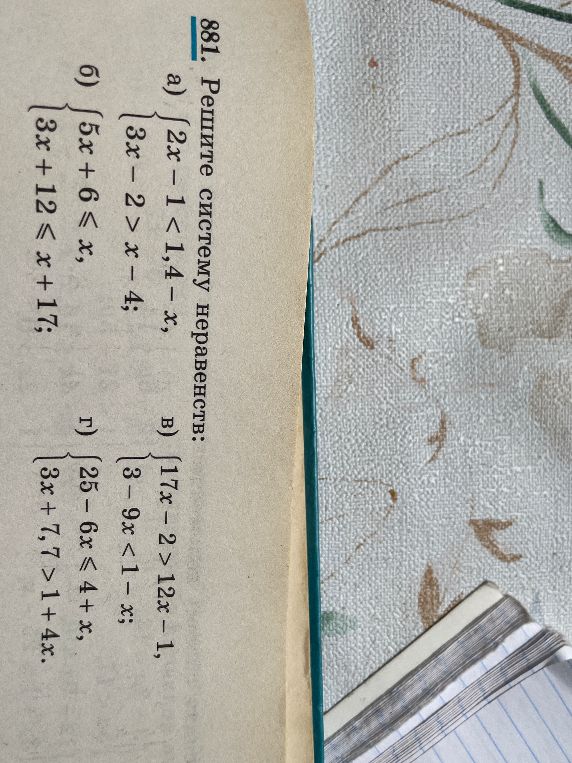 881. Решите систему неравенств:
а) { 2x − 1 < 1,4 − x,
3x − 2 > x − 4;
б) { 5x + 6 ⩽ x,
3x + 12 ⩽ x + 17;
в) { 17x − 2 > 12x − 1,
3 − 9x < 1 − x;
г) { 25 − 6x ⩽ 4 + x,
3x + 7,7 > 1 + 4x.